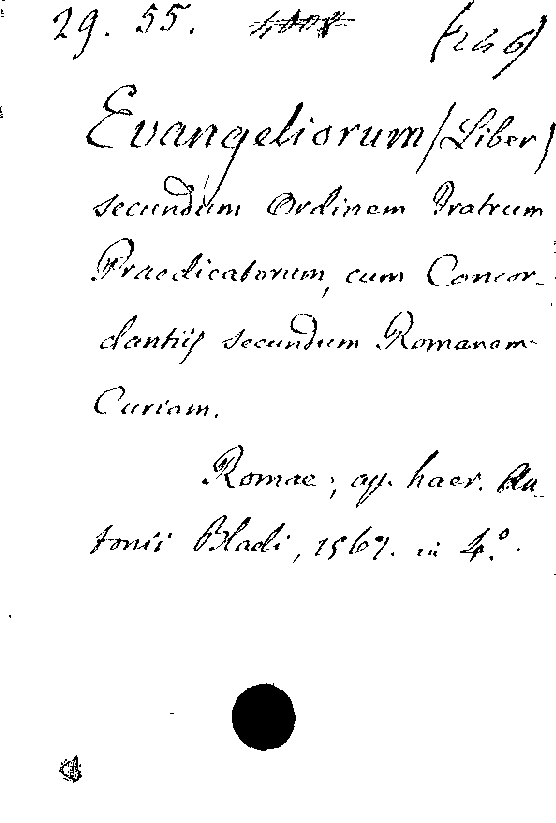 29. 55. (246)
Evangeliorum (Liber)
secundum Ordinem Fratrum
Praedicatorum, cum Concor-
dantiis secundum Romanam
Curiam.
Romae, ap. haer. An-
tonii Bladi, 1567. in 4.º